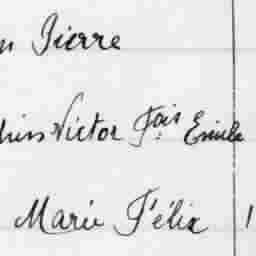 Pierre
Victor Fçois Emile
Marie Félix